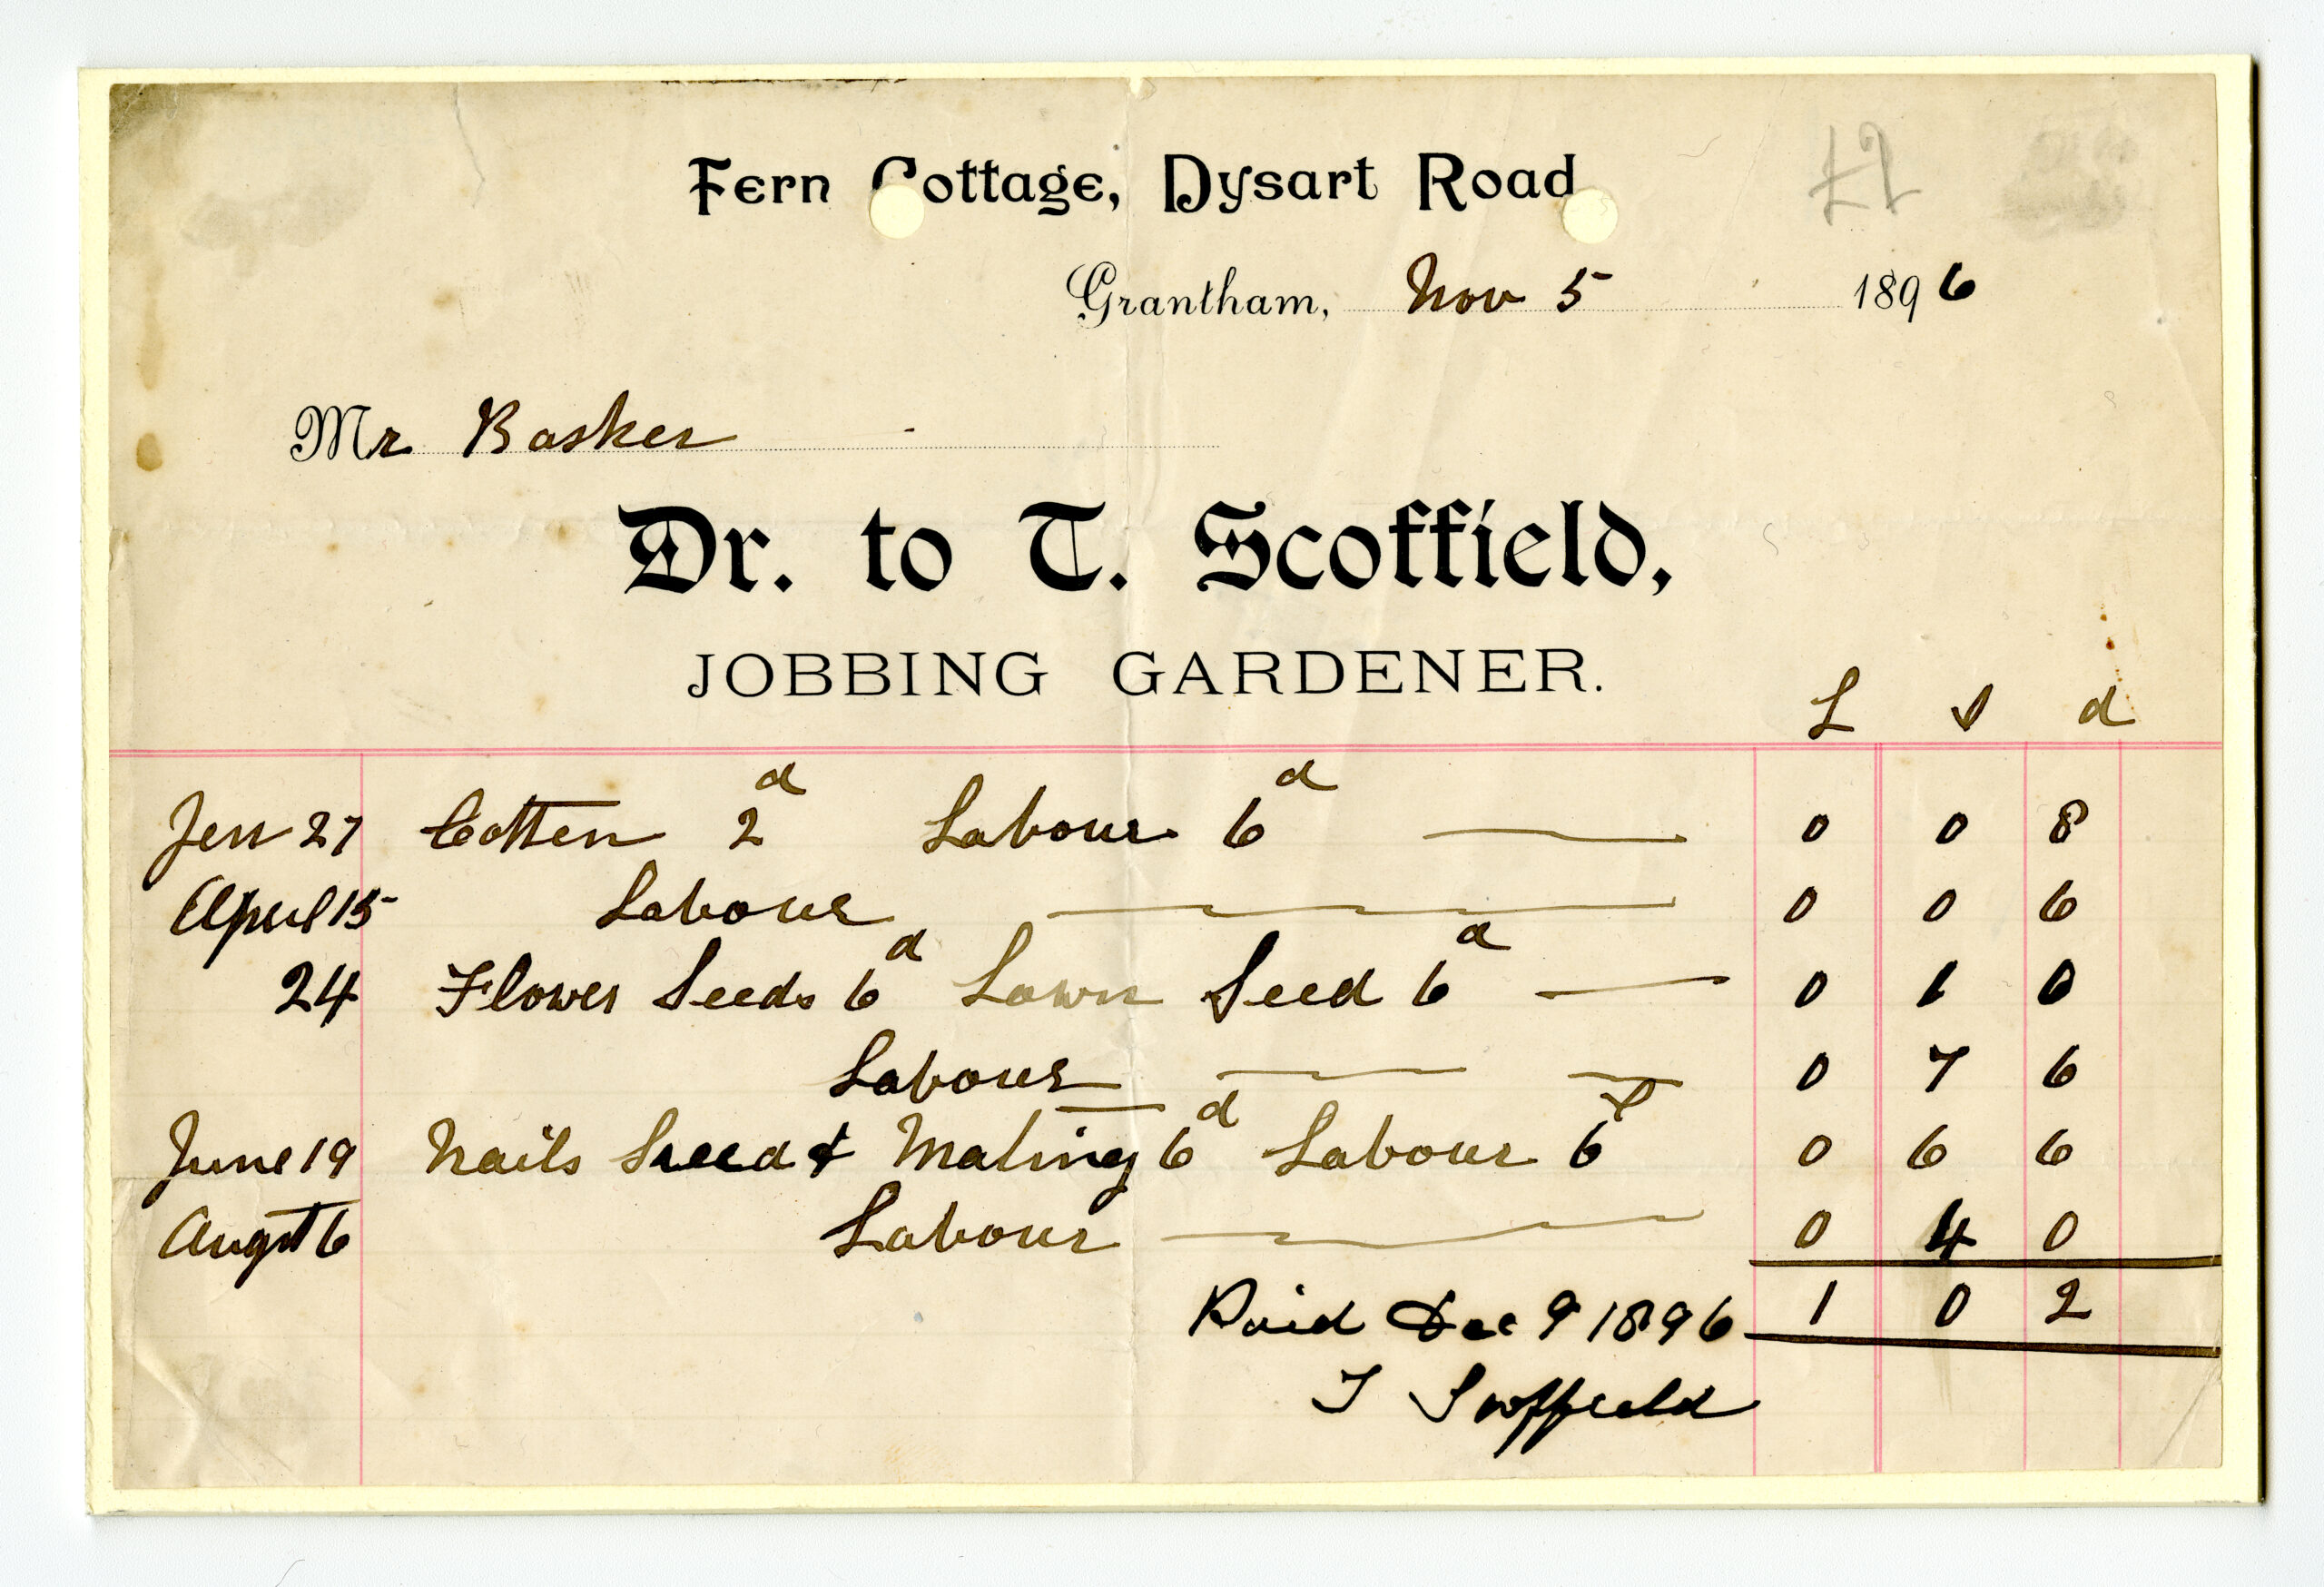 Fern Cottage, Dysart Road
Grantham, Nov 5 1896
Mr Basker
Dr. to T. Scoffield,
JOBBING GARDENER.
L s d
Jen 27 Cotten 2d Labour 6d 0 0 8
April 15 Labour 0 0 6
24 Flower Seeds 6d Lawn Seed 6d 0 1 0
Labour 0 7 6
June 19 Nails Sreed & Mating 6d Labour 6s 0 6 6
Augst 6 Labour 0 4 0
Paid Dec 9 1896 1 0 2
T Scoffield